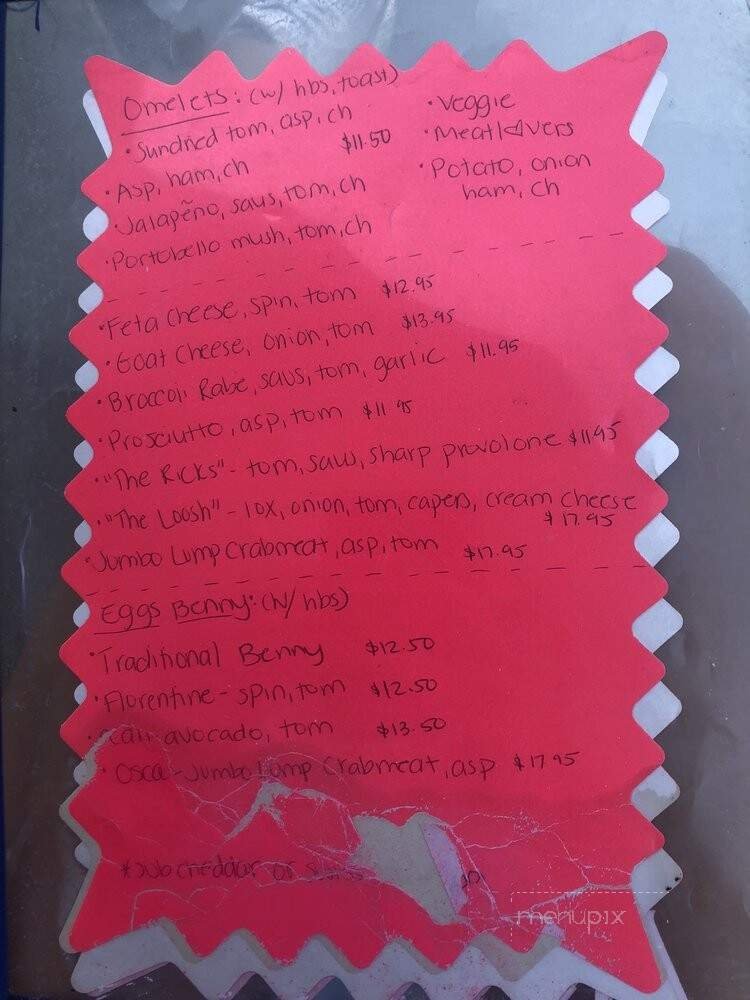 Omelets: (w/ hbs, toast)
• Sundried tom, asp, ch
$11.50
• Asp, ham, ch
• Jalapeño, saus, tom, ch
• Portobello mush, tom, ch
• Veggie
• Meatl♡vers
• Potato, onion
ham, ch
• Feta Cheese, spin, tom $12.95
• Goat Cheese, onion, tom $13.95
• Broccoli Rabe, saus, tom, garlic $11.95
• Prosciutto, asp, tom $11.95
• "The Ricks" - tom, saus, sharp provolone $11.95
• "The Loosh" - lox, onion, tom, capers, cream cheese
$17.95
• Jumbo Lump Crabmeat, asp, tom $17.95
Eggs Benny: (w/ hbs)
• Traditional Benny $12.50
• Florentine - spin, tom $12.50
avocado, tom $13.50
• Osca - Jumbo Lump Crabmeat, asp $17.95
*Sub cheddar or
menupix